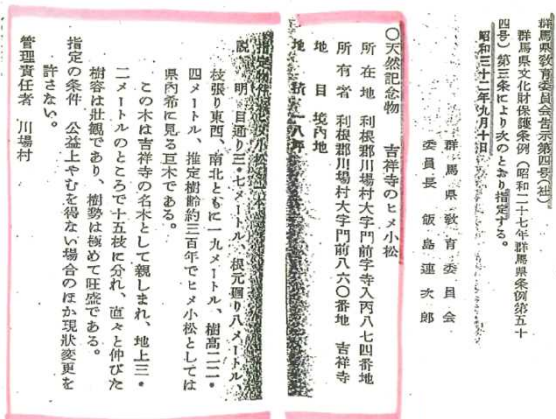 群馬県教育委員会告示第四号（社）
群馬県文化財保護条例（昭和二十七年群馬県条例第五十
四号）第三条により次のとおり指定する。
昭和三十二年九月十日
群馬県教育委員会
委員長　飯島連次郎
〇天然記念物　吉祥寺のヒメ小松
所在地　利根郡川場村大字門前字寺入丙八七四番地
所有者　利根郡川場村大字門前八六〇番地　吉祥寺
地目　境内地
地積
指定物件　ヒメ小松　一本
説明　目通り三・七メートル、根元廻り八メートル、
枝張り東西、南北ともに一九メートル、樹高二二・
四メートル、推定樹齢約三百年でヒメ小松としては
県内希に見る巨木である。
この木は吉祥寺の名木として親しまれ、地上三・
二メートルのところで十五枝に分れ、直々と伸びた
樹容は壮観であり、樹勢は極めて旺盛である。
指定の条件　公益上やむを得ない場合のほか現状変更を
許さない。
管理責任者　川場村